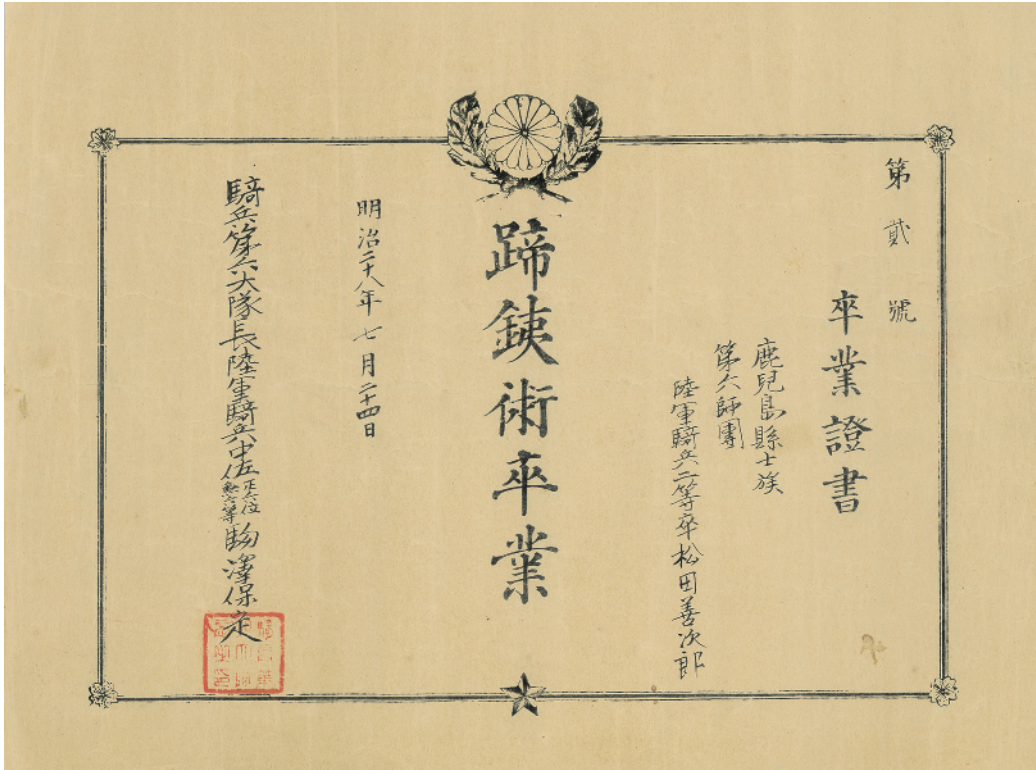 第貳號
卒業證書
鹿兒島縣士族
第六師團
陸軍騎兵二等卒松田善次郎
蹄鉄術卒業
明治二十八年七月二十四日
騎兵第六大隊長陸軍騎兵中佐正六位勲六等駒澤保定